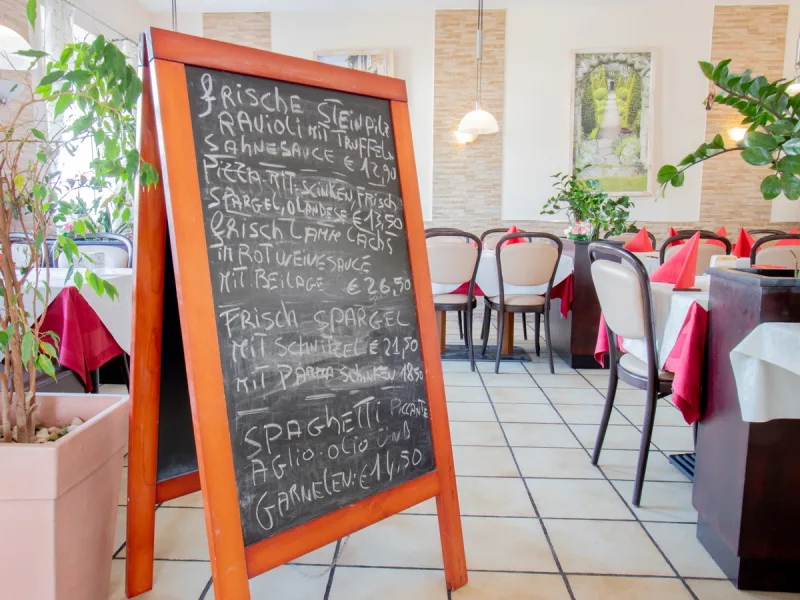 FRISCHE STEINPILZ
RAVIOLI MIT TRÜFFEL
SAHNESAUCE € 12,90
PIZZA MIT SCINKEN, FRISCH
SPARGEL, OLANDESE € 13,50
FRISCH LAMM CACHS
IN ROTWEINESAUCE
MIT. BEILAGE € 26,50
FRISCH SPARGEL
MIT SCHNITZEL € 21,50
MIT PARMA SCHINKEN 18,50
SPAGHETTI PICCANTE
AGLIO-OLIO UND
GARNELEN: € 14,50